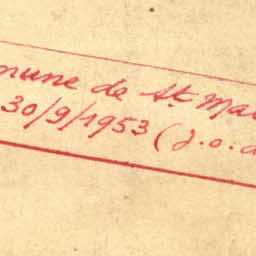 mune de St Mau
30/9/1953 (J.O. d